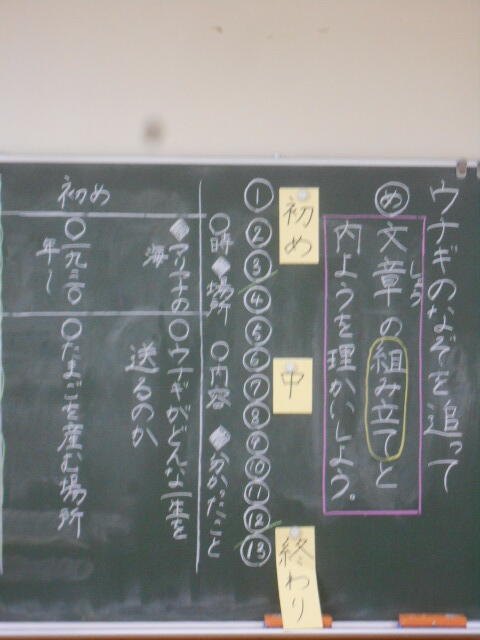 ウナギのなぞを追って
め 文章の組み立てと
しょう
内ようを理かいしよう。
初め
中
終わり
①
②
③
④
⑤
⑥
⑦
⑧
⑨
⑩
⑪
⑫
⑬
○時◆場所 ○内容 ◆分かったこと
初め
◆マリアナの
海
○ウナギがどんな一生を
送るのか
○一九三〇
年〜
○たまごを産む場所